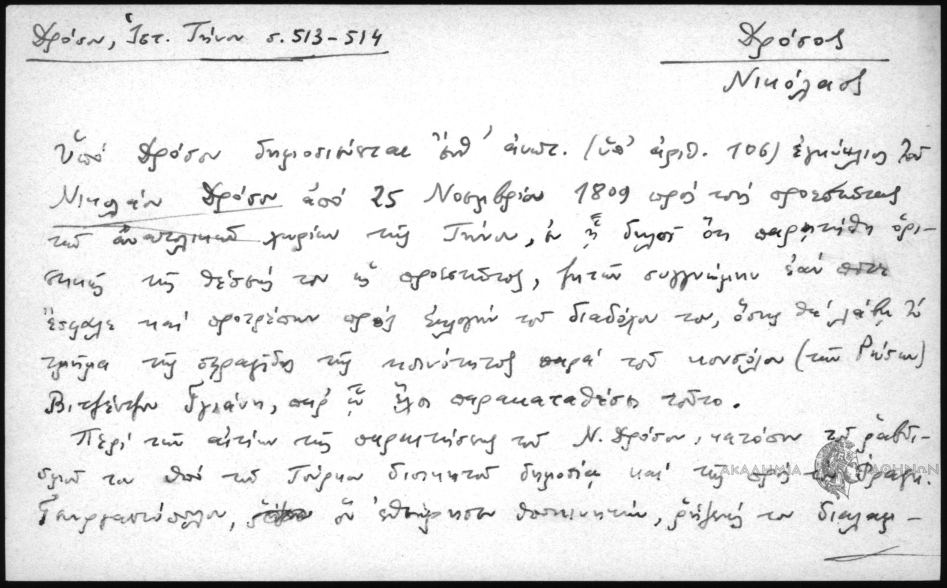 Δρόσου, Ἱστ. Τήνου σ. 513-514
Δρόσος
Νικόλαος
Ὑπό Δρόσου δημοσιεύεται ἐνθ' ἀνωτ. (ὑπ' ἀριθ. 106) ἐγκύκλιος τοῦ
Νικολάου Δρόσου ἀπό 25 Νοεμβρίου 1809 πρός τούς προεστῶτας
τῶν ἀνατολικῶν χωρίων τῆς Τήνου, ἐν ᾗ δηλοῖ ὅτι παρῃτήθη ὁρι-
στικῶς τῆς θέσεώς του ὡς προεστῶτος, ζητῶν συγγνώμην ἐάν ποτε
ἔσφαλε καί προτρέπων πρός ἐκλογήν τοῦ διαδόχου του, ὅστις θά λάβῃ τό
τμῆμα τῆς σφραγίδος τῆς κοινότητος παρά τοῦ κονσόλου (τῶν Ρώσων)
Βιτζέντζου παρ' ᾧ ἔχει παρακαταθέσει τοῦτο.
Περί τῶν αἰτίων τῆς παραιτήσεως τοῦ Ν. Δρόσου, κατόπιν τοῦ ραβδι-
σμοῦ του ὑπό τοῦ Τούρκου διοικητοῦ δημοσίᾳ καί τῆς πρός τόν Φραγκ.
Γεωργαντόπουλον, ὅν ἐθεώρησεν ὑποκινητήν, ρήξεώς του διαλαμ-
ΑΚΑΔΗΜΙΑ ΑΘΗΝΩΝ